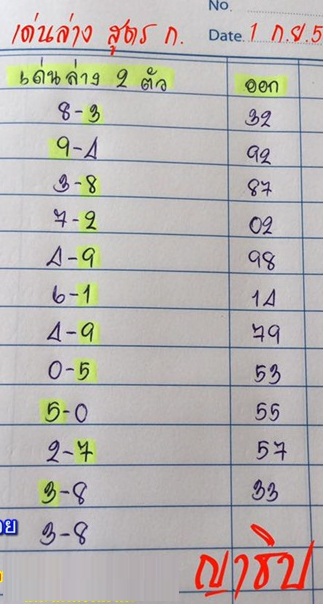 No.
เด่นล่าง สูตร ก. Date. 1 ก.ย.5
เด่นล่าง 2 ตัว ออก
8-3 32
9-4 92
3-8 87
7-2 02
4-9 98
6-1 14
4-9 79
0-5 53
5-0 55
2-7 57
3-8 33
3-8
ญาธิป